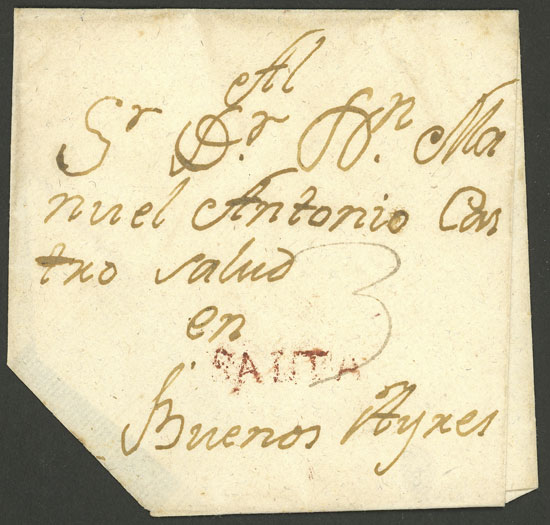 Al
Sr Dr. Dn. Ma
nuel Antonio Cas
tro salud
3
en
SALTA
Buenos Ayres